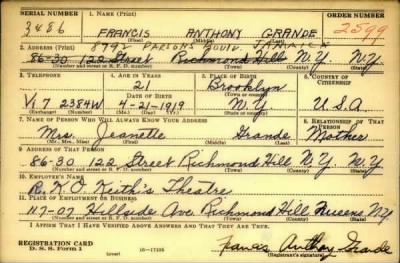 SERIAL NUMBER 1. NAME (Print) ORDER NUMBER
3486 FRANCIS ANTHONY GRANDE 2599
(First) (Middle) (Last)
8792 PARSONS BOULV. JAMAICA
2. ADDRESS (Print)
86-30 122 Street Richmond Hill N.Y. N.Y.
(Number and street or R. F. D. number) (Town) (County) (State)
3. TELEPHONE 4. AGE IN YEARS 5. PLACE OF BIRTH 6. COUNTRY OF CITIZENSHIP
21 Brooklyn
DATE OF BIRTH (Town or county)
Vi 7 2384W 4-21-1919 N.Y. U.S.A
(Exchange) (Number) (Mo.) (Day) (Yr.) (State or country)
7. NAME OF PERSON WHO WILL ALWAYS KNOW YOUR ADDRESS 8. RELATIONSHIP OF THAT PERSON
Mrs. Jeanette Grande Mother
(Mr., Mrs., Miss) (First) (Middle) (Last)
9. ADDRESS OF THAT PERSON
86-30 122 Street Richmond Hill N.Y. N.Y.
(Number and street or R. F. D. number) (Town) (County) (State)
10. EMPLOYER'S NAME
R.K.O. Keith's Theatre
11. PLACE OF EMPLOYMENT OR BUSINESS
117-07 Hillside Ave. Richmond Hill Queens N.Y.
(Number and street or R. F. D. number) (Town) (County) (State)
I AFFIRM THAT I HAVE VERIFIED ABOVE ANSWERS AND THAT THEY ARE TRUE.
REGISTRATION CARD
D. S. S. Form 1 (over) Francis Anthony Grande
(Registrant's signature)